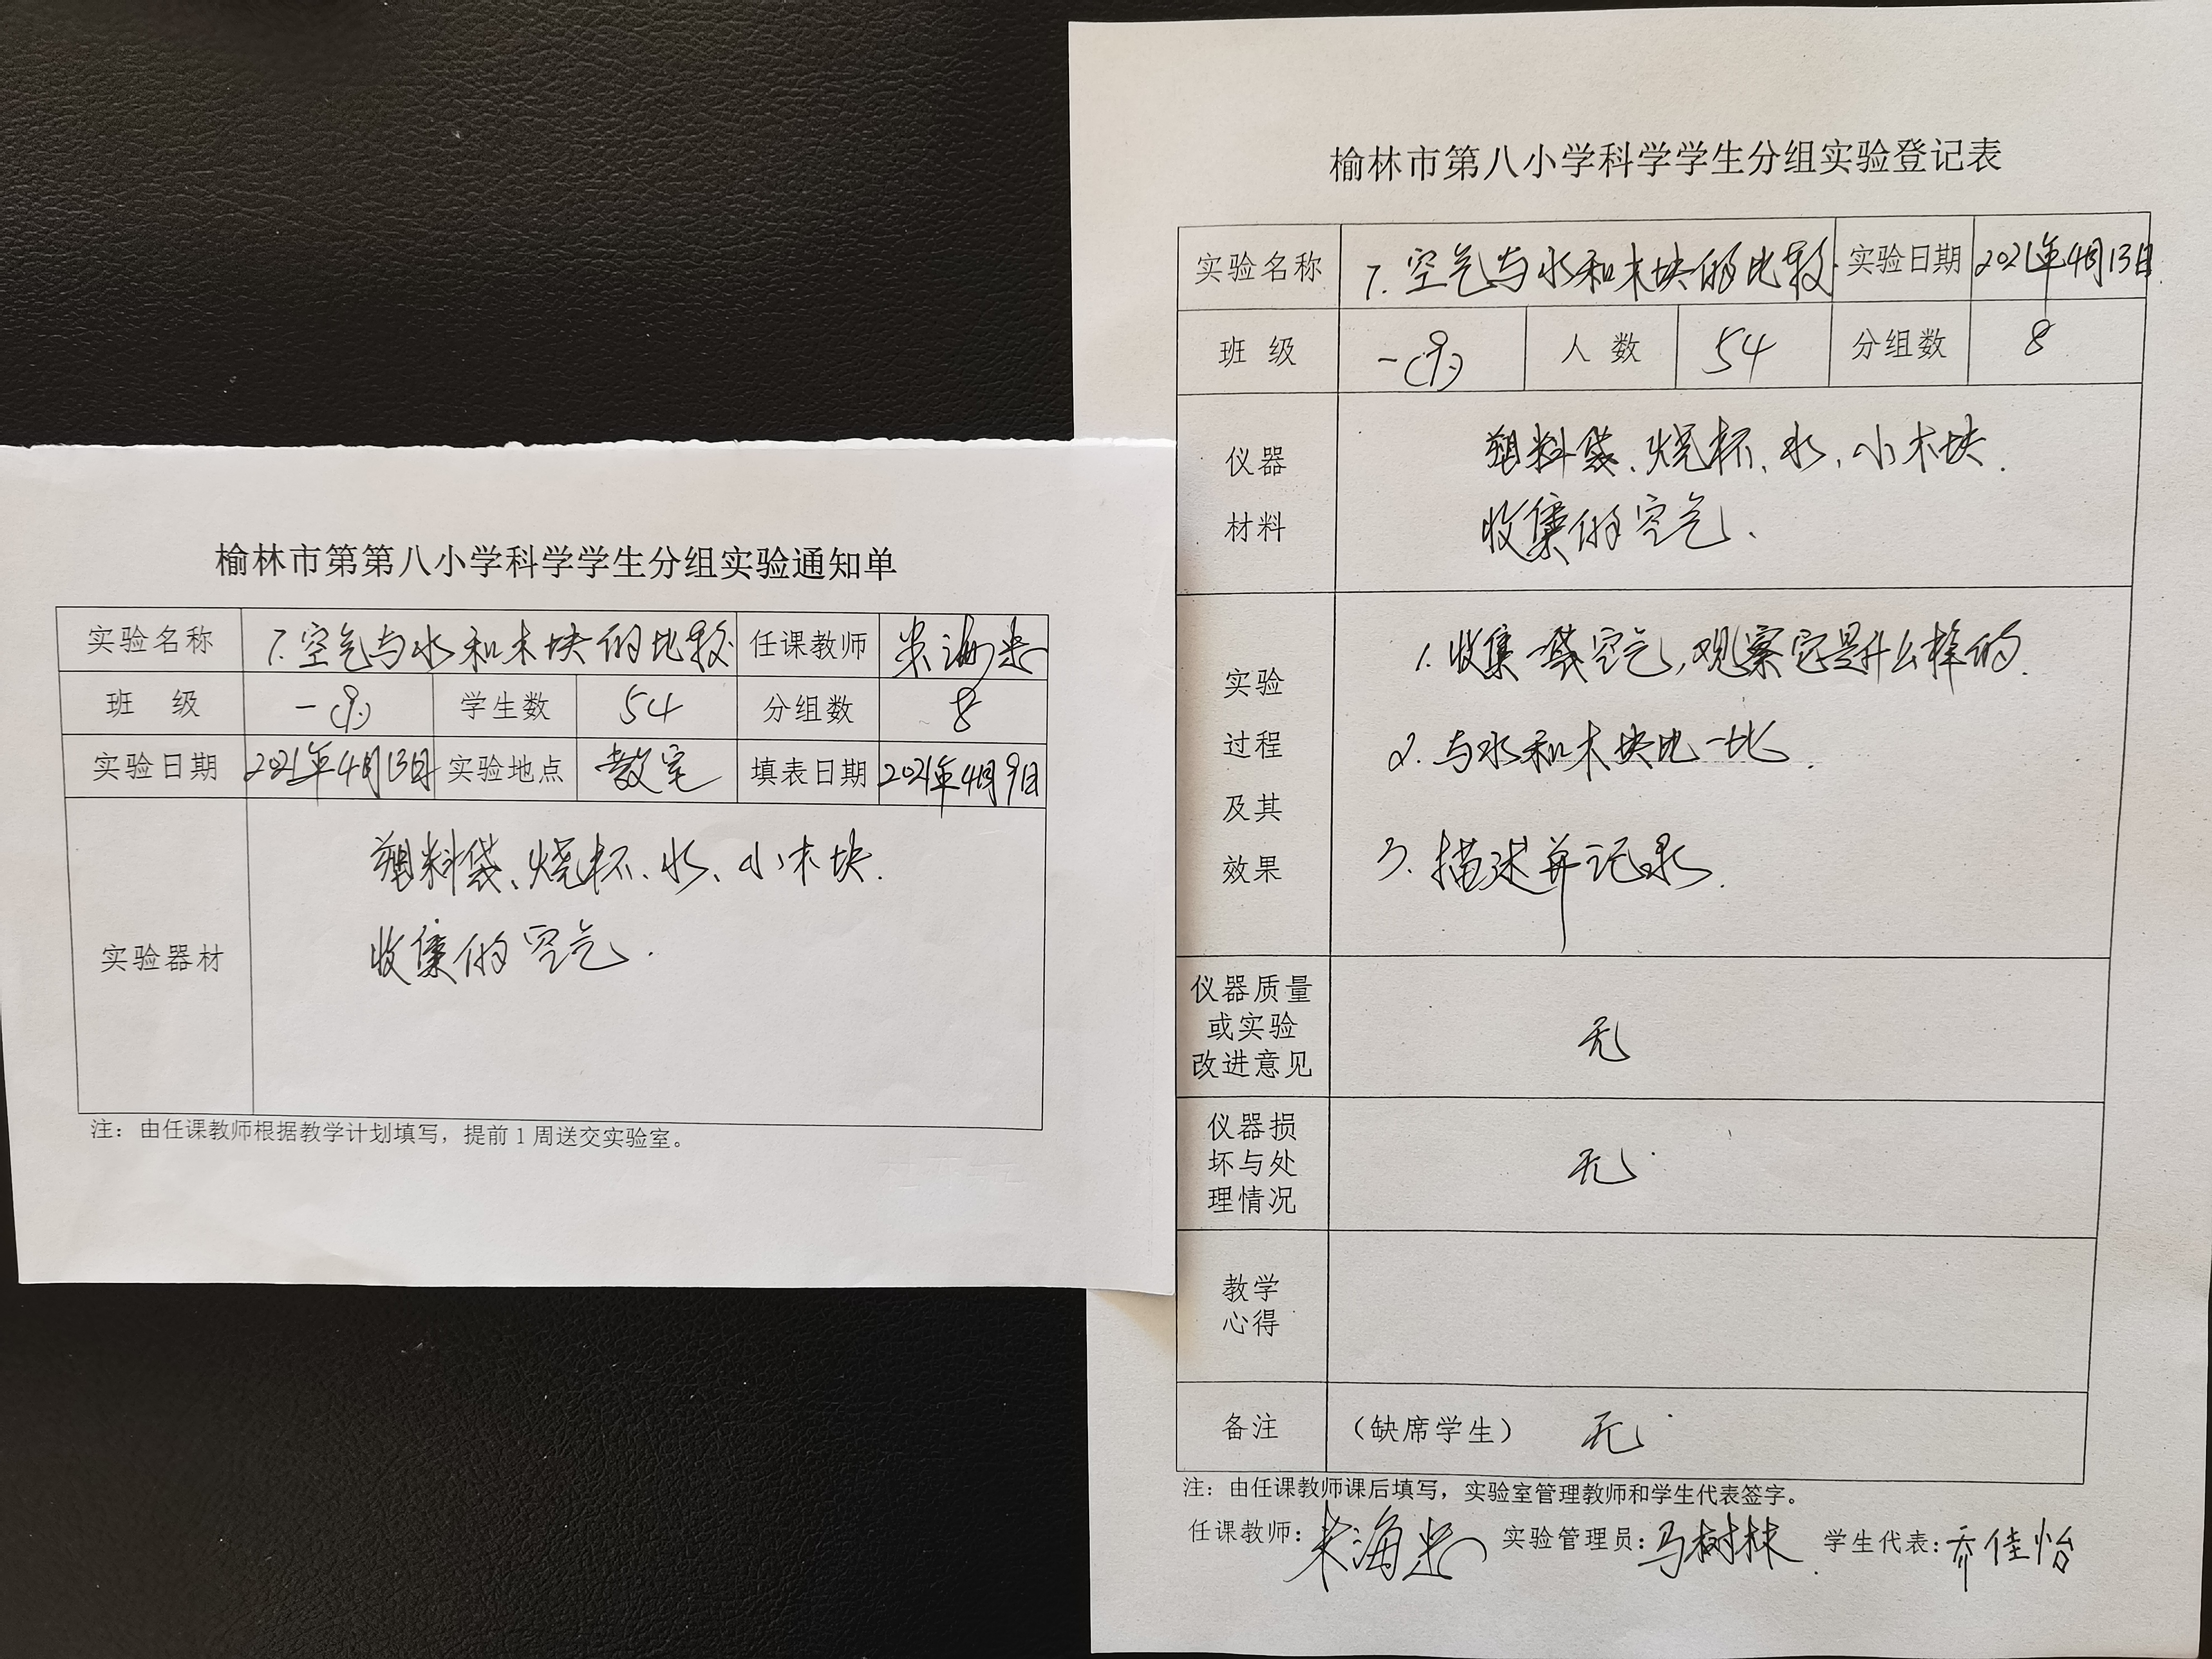 榆林市第第八小学科学学生分组实验通知单
实验名称 7.空气与水和木块的比较 任课教师
班 级 一(9) 学生数 54 分组数 8
实验日期 2021年4月13日 实验地点 教室 填表日期 2021年4月9日
实验器材
塑料袋、烧杯、水、小木块.
收集的空气.
注：由任课教师根据教学计划填写，提前1周送交实验室。
榆林市第八小学科学学生分组实验登记表
实验名称 7.空气与水和木块的比较. 实验日期 2021年4月13日.
班 级 一(9) 人 数 54 分组数 8
仪器
材料
塑料袋、烧杯、水、小木块.
收集的空气.
实验
过程
及其
效果
1.收集一袋空气,观察它是什么样的.
2.与水和木块比一比.
3.描述并记录.
仪器质量
或实验
改进意见
无
仪器损
坏与处
理情况
无
教学
心得
备注 （缺席学生） 无
注：由任课教师课后填写，实验室管理教师和学生代表签字。
任课教师： 实验管理员：马树林 学生代表：乔佳怡